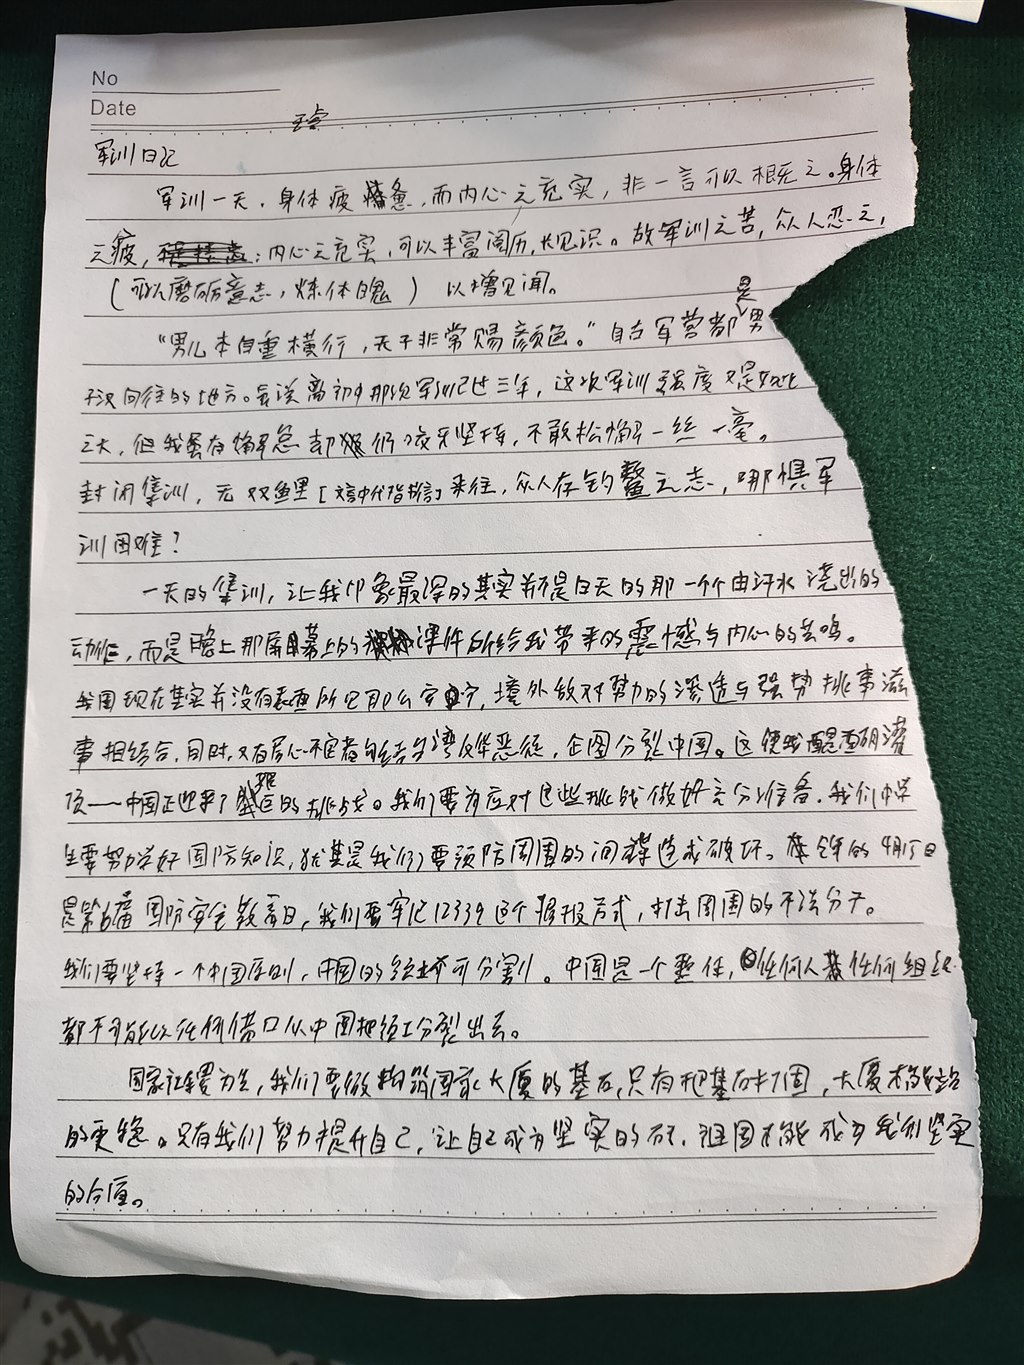 No
Date
军训日记
军训一天，身体疲惫，而内心之充实，非一言可以概无之。身体
之疲，；内心之充实，可以丰富阅历，长见识。故军训之苦，众人忍之，
（可以磨砺意志，炼体魄） 以增见闻。
“男儿本自重横行，天子非常赐颜色。”自古军营都是男
子汉向往的地方。虽说离初中那次军训已过三年，这次军训强度又是如此
之大，但我虽有懈怠却仍咬牙坚持，不敢松懈一丝一毫。
封闭集训，无双鱼里[文言中代指信]来往，众人存钓鳌之志，哪惧军
训困难？
一天的集训，让我印象最深的其实并不是白天的那一个个由汗水浇出的
动作，而是晚上那屏幕上的课件所给我带来的震憾与内心的共鸣。
我国现在其实并没有表面所见那么安宁，境外敌对势力的渗透与强势挑事滋
事相结合，同时，又有居心不定者勾结台湾反华恶徒，企图分裂中国。这使我醒
——中国正迎来了艰巨的挑战。我们要为应对这些挑战做好充分准备，我们中学
生要努力学好国防知识，尤其是我们要预防周围的间谍造成破坏。今年的4月15日
是第6届国防安全教育日，我们要牢记12339这个报方式，打击周围的不法分子。
我们要坚持一个中国原则，中国的领土不可分割。中国是一个整体，任何人或任何组织
都不可能以任何借口从中国把领土分裂出去。
国家让我为先，我们要做构筑国家大厦的基石，只有把基石打固，大厦才能站
的更稳。只有我们努力提升自己，让自己成为坚实的石，祖国才能成为我们坚实
的后盾。